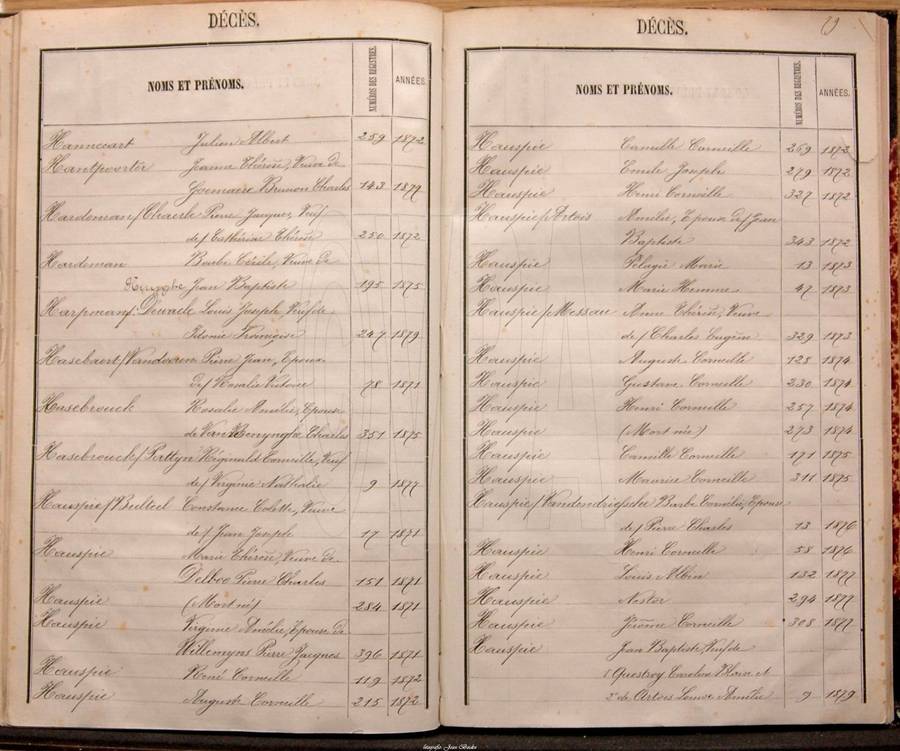 DÉCÈS.
NOMS ET PRÉNOMS.
NUMÉROS DES REGISTRES.
ANNÉES.
Hannecart Julien Albert 259 1872
Hantpoorter Jeanne Thérèse, Veuve de
Gremaire Brunon Charles 143 1879
Hardeman / Chaerle Pierre Jacques, Veuf
de / Cathérine Thérèse 250 1872
Hardeman Barbe Cécile, Veuve de
Jean Baptiste 195 1875
Louis Joseph, Veuf de
247 1879
Hasebaert / Vandooren Pierre Jean, Epoux
de / Rosalie Victoire 78 1871
Hasebrouck Rosalie Amélie, Epouse
de Van Benynghe Charles 351 1875
Hasebrouck / Perttyn Réginald Corneille, Veuf
de / Virginie Nathalie 9 1877
Hauspie / Bulteel Constance Colette, Veuve
de / Jean Joseph 17 1871
Hauspie Marie Thérèse, Veuve de
Delboo Pierre Charles 151 1871
Hauspie (Mort né) 284 1871
Hauspie Virginie Amélie, Epouse de
Willemyns Pierre Jacques 396 1871
Hauspie René Corneille 119 1872
Hauspie Auguste Corneille 215 1872
DÉCÈS.
29
NOMS ET PRÉNOMS.
NUMÉROS DES REGISTRES.
ANNÉES.
Hauspie Camille Corneille 269 1872
Hauspie Emile Joseph 279 1872
Hauspie Henri Corneille 327 1872
Hauspie / Artois Amélie, Epouse de / Jean
Baptiste 343 1872
Hauspie Pélagie Marie 13 1873
Hauspie Marie Hemme 47 1873
Hauspie / Messeau Anne Thérèse, Veuve
de / Charles Eugène 329 1873
Hauspie Auguste Corneille 128 1874
Hauspie Gustave Corneille 230 1874
Hauspie Henri Corneille 257 1874
Hauspie (Mort né) 273 1874
Hauspie Camille Corneille 171 1875
Hauspie Maurice Corneille 311 1875
Hauspie / Vandendriessche Barbe Cornélie, Epouse
de / Pierre Charles 13 1876
Hauspie Henri Corneille 58 1876
Hauspie Louis Albin 132 1877
Hauspie Nestor 294 1877
Hauspie Jérôme Corneille 308 1877
Hauspie Jean Baptiste, Veuf de
1° Questroy Caroline et
2° de Artois Louise Amélie 9 1879
fotografie Jean Backx